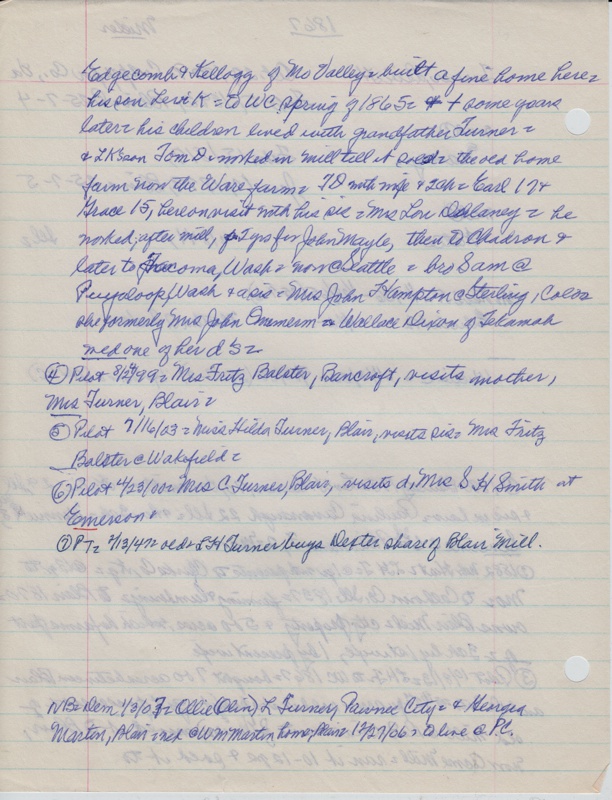 Edgecomb & Kellogg of Mo Valley = built a fine home here =
his son Levi K = to WC spring of 1865 = & + some years
later = his children lived with grandfather Turner =
& LK son Tom D = worked in mill till it sold = the old home
farm now the Ware farm = TD with wife & 2 ch = Earl 17 &
Grace 15, here on visit with his sis = Mrs Lon Delaney = he
worked, after mill, 2 yrs for John Mayle, then to Chadron &
later to Tacoma, Wash = now @ Seattle = bro Sam @
Puyaloop, Wash & a sis = Mrs John Hampton @ Sterling, Colo =
she formerly Mrs John = Wallace Dixon of Tekamah
med one of her d's =
④ Pilot 8/2/99 = Mrs Fritz Balster, Bancroft, visits mother,
Mrs Turner, Blair =
⑤ Pilot 7/16/03 = Miss Hilda Turner, Blair, visits sis = Mrs Fritz
Balster @ Wakefield =
⑥ Pilot 4/23/00 = Mrs C. Turner, Blair, visits d, Mrs S H Smith at
Emerson.
⑦ PT = 2/3/47 = old = L H Turner buys Dexter share of Blair Mill.
NB = Dem 1/3/07 = Ollie (Olin) L Turner, Pawnee City = &
Martin, Blair = med @ Wm Martin home, Blair = 12/27/06 = to live @ P.C.